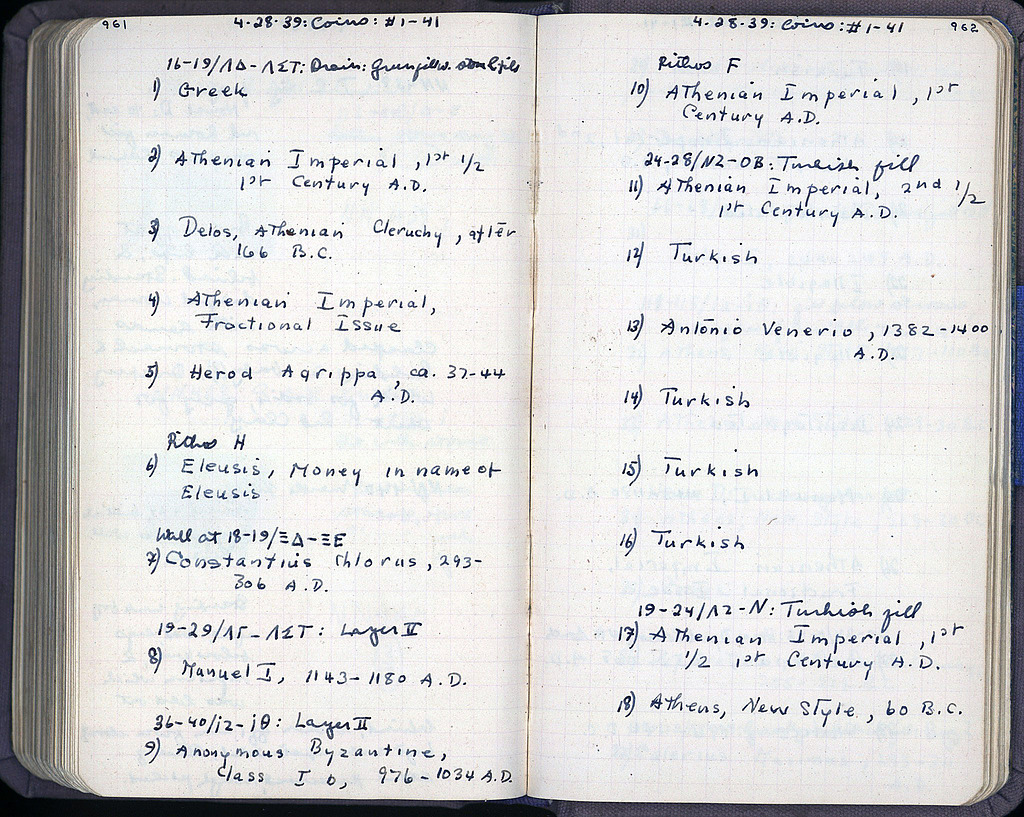 961
4-28-39: Coins: #1-41
16-19/ΛΔ-ΛΣΤ: Drain:
1) Greek
2) Athenian Imperial, 1st 1/2
1st Century A.D.
3) Delos, Athenian Cleruchy, after
166 B.C.
4) Athenian Imperial,
Fractional Issue
5) Herod Agrippa, ca. 37-44
A.D.
Pithos H
6) Eleusis, Money in name of
Eleusis
Wall at 18-19/ΞΔ-ΞΕ
7) Constantius Chlorus, 293-
306 A.D.
19-29/ΛΓ-ΛΣΤ: Layer II
8) Manuel I, 1143-1180 A.D.
36-40/ιζ-ιθ: Layer II
9) Anonymous Byzantine,
Class I b, 976-1034 A.D.
4-28-39: Coins: #1-41
962
Pithos F
10) Athenian Imperial, 1st
Century A.D.
24-28/ΝΖ-ΟΒ: Turkish fill
11) Athenian Imperial, 2nd 1/2
1st Century A.D.
12) Turkish
13) Antonio Venerio, 1382-1400
A.D.
14) Turkish
15) Turkish
16) Turkish
19-24/ΛΖ-Ν: Turkish fill
17) Athenian Imperial, 1st
1/2 1st Century A.D.
18) Athens, New Style, 60 B.C.